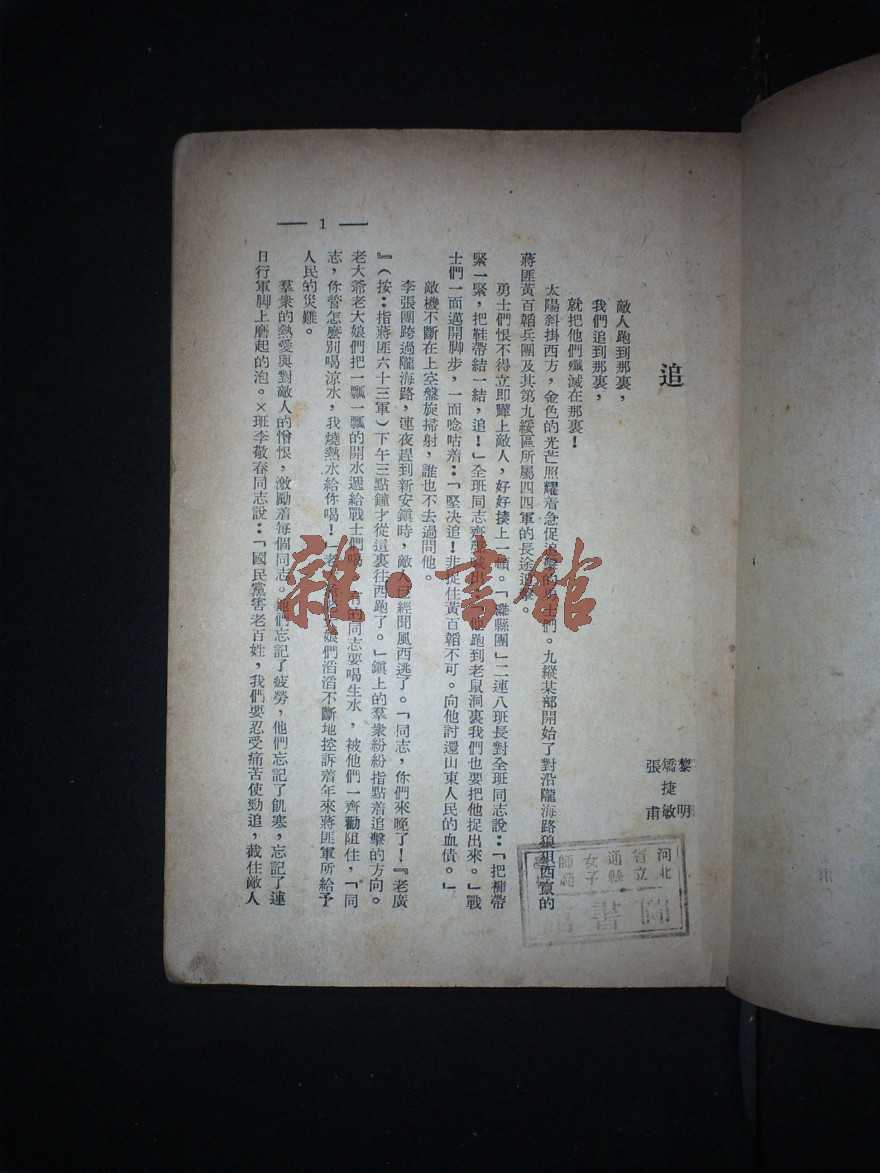 追
黎明
橋捷敏
張甫
敵人跑到那裏，
我們追到那裏，
就把他們殲滅在那裏！
太陽斜掛西方，金色的光芒照耀着急促追擊的勇士們。九縱某部開始了對沿隴海路狼狽西竄的
蔣匪黃百韜兵團及其第九綏區所屬四四軍的長途追擊。
勇士們恨不得立即攆上敵人，好好揍上一頓。「濰縣團」二連八班長對全班同志說：「把褲帶
緊一緊，把鞋帶結一結，追！」全班同志齊聲喊出：他跑到老鼠洞裏我們也要把他捉出來。」戰
士們一面邁開脚步，一面唸咕着：「堅决追！非捉住黃百韜不可。向他討還山東人民的血債。」
敵機不斷在上空盤旋掃射，誰也不去過問他。
李張團跨過隴海路，連夜趕到新安鎭時，敵人已經聞風西逃了。「同志，你們來晚了！『老廣
』（按：指蔣匪六十三軍）下午三點鐘才從這裏往西跑了。」鎭上的羣衆紛紛指點着追擊的方向。
老大爺老大娘們把一瓢一瓢的開水遞給戰士們喝，有的同志要喝生水，被他們一齊勸阻住，「同
志，你管怎麽別喝涼水，我燒熱水給你喝！」老大爺老大娘們滔滔不斷地控訴着年來蔣匪軍所給予
人民的災難。
羣衆的熱愛與對敵人的憎恨，激勵着每個同志。他們忘記了疲勞，他們忘記了飢寒，忘記了連
日行軍脚上磨起的泡。×班李敬春同志說：「國民黨害老百姓，我們要忍受痛苦使勁追，截住敵人
— 1 —
河北省立通縣女子師範
圖書
雜·書館